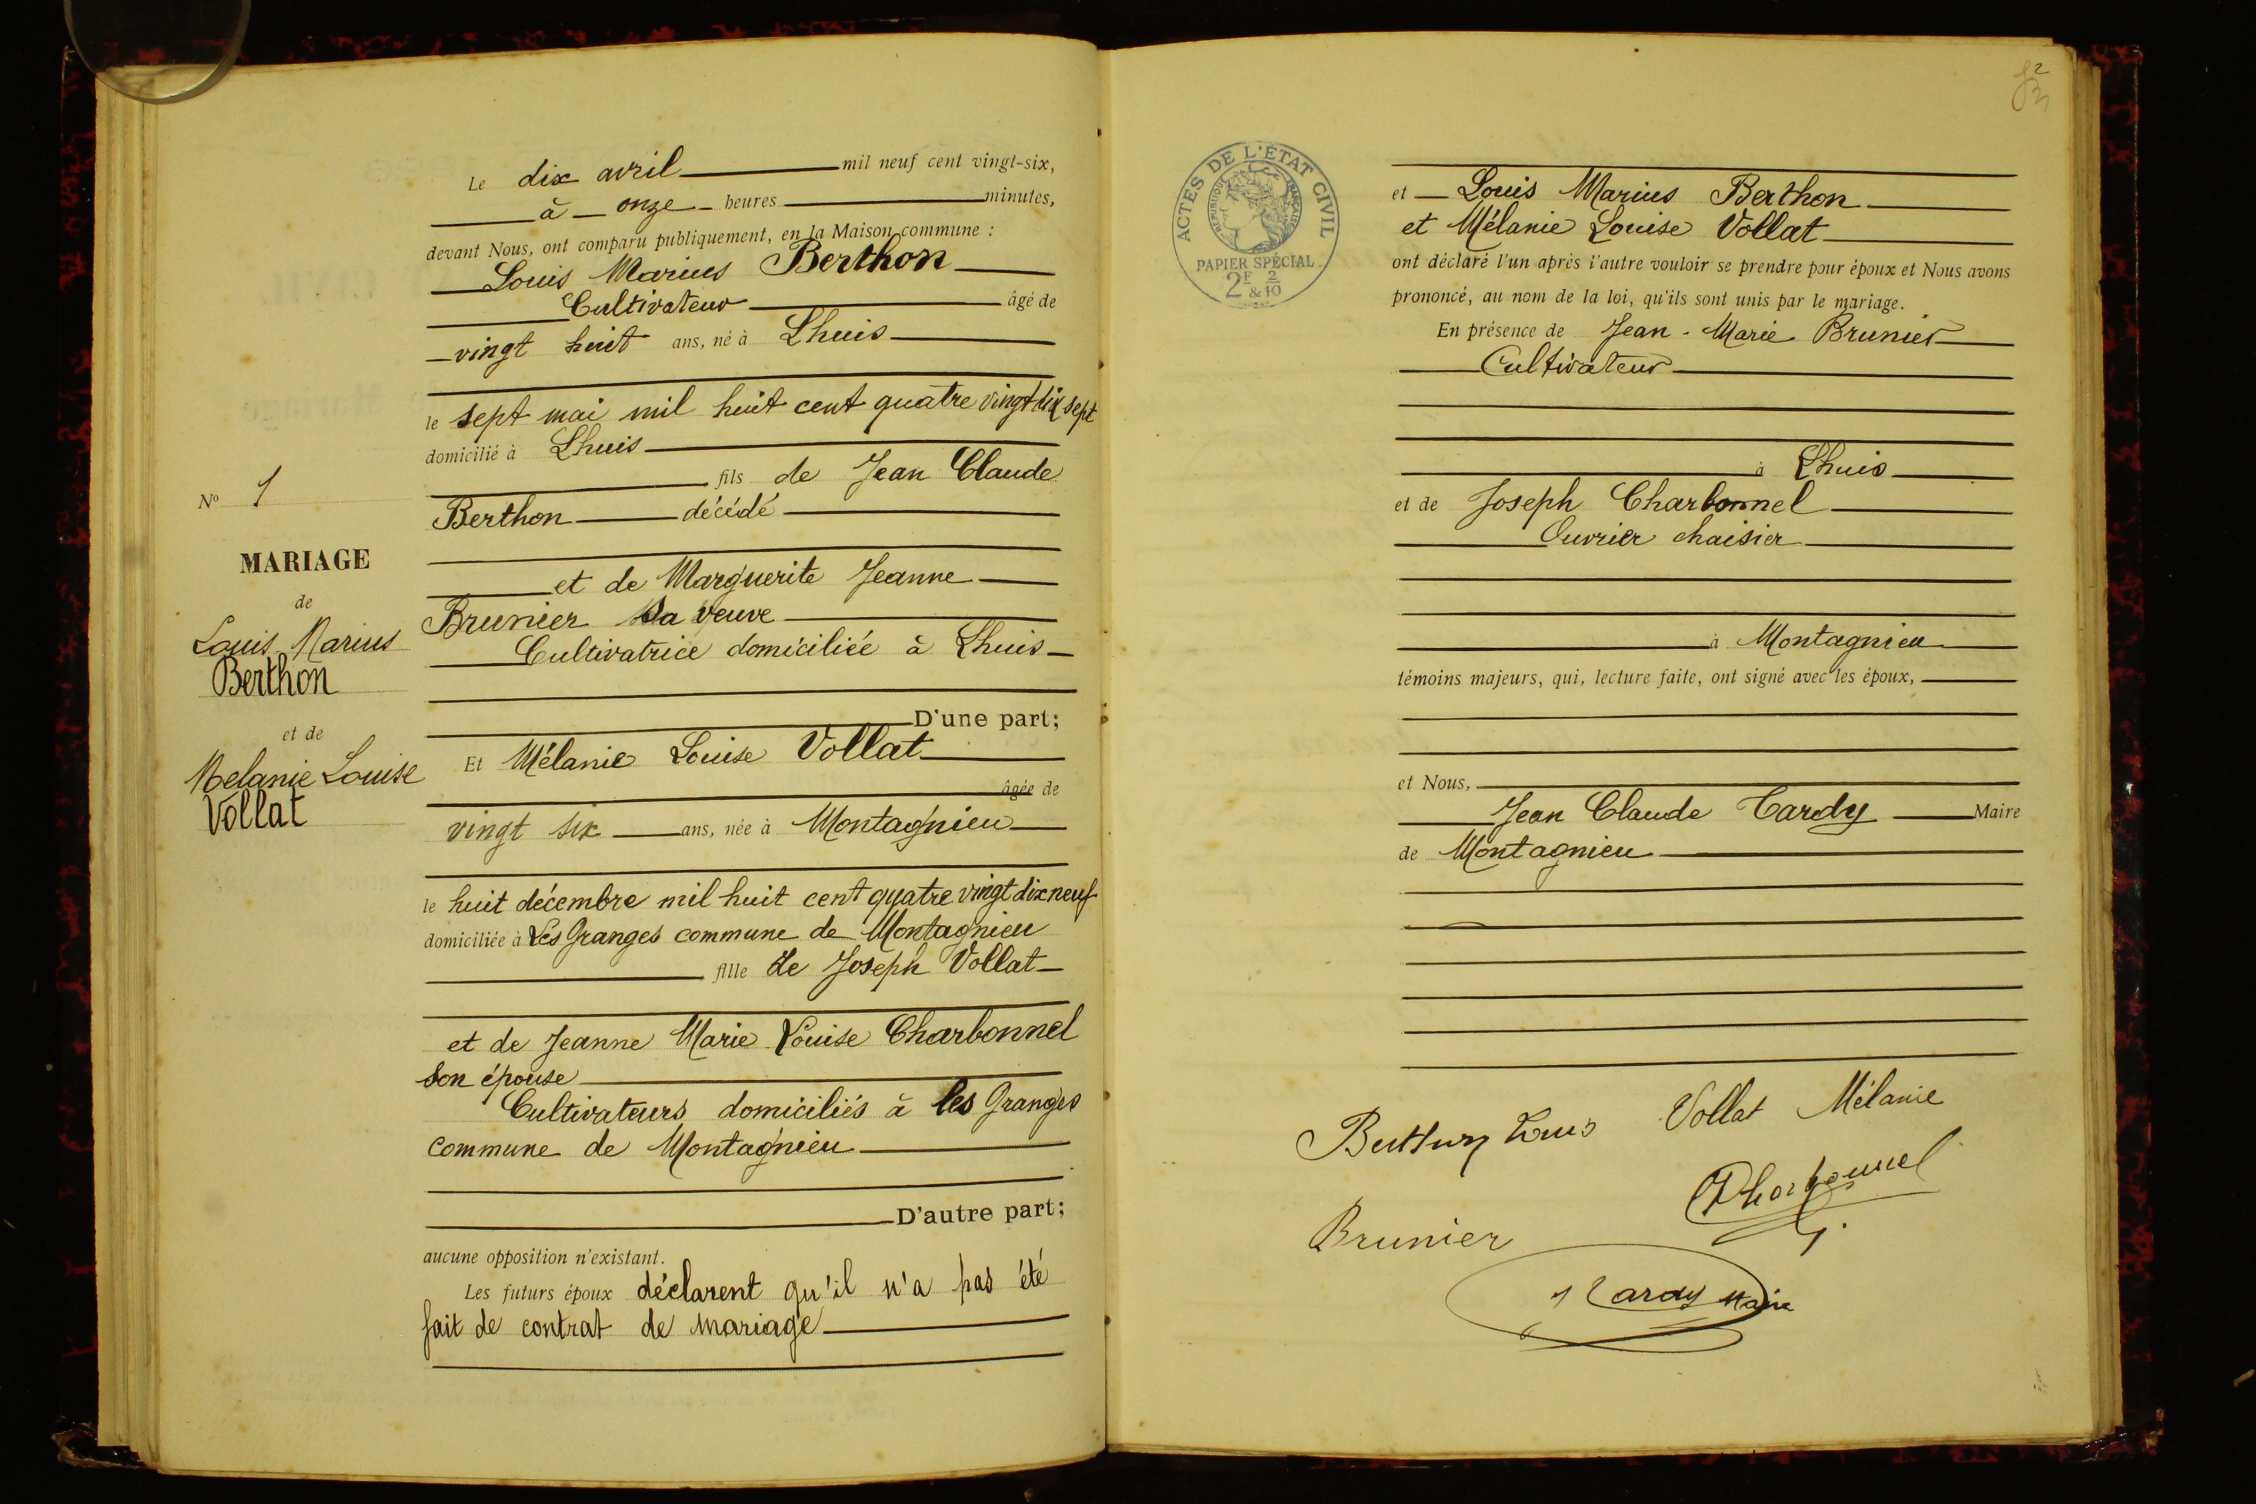 Le dix avril mil neuf cent vingt-six,
à onze heures minutes,
devant Nous, ont comparu publiquement, en la Maison commune :
Louis Marius Berthon
Cultivateur âgé de
vingt huit ans, né à Lhuis
le sept mai mil huit cent quatre vingt dix sept
domicilié à Lhuis
fils de Jean Claude
Berthon décédé
et de Marguerite Jeanne
Brunier sa veuve
Cultivatrice domiciliée à Lhuis
D'une part;
Et Mélanie Louise Vollat
âgée de
vingt six ans, née à Montagnieu
le huit décembre mil huit cent quatre vingt dix neuf
domiciliée à Les Granges commune de Montagnieu
fille de Joseph Vollat
et de Jeanne Marie Louise Charbonnel
son épouse
Cultivateurs domiciliés à les Granges
commune de Montagnieu
D'autre part;
aucune opposition n'existant.
Les futurs époux déclarent qu'il n'a pas été
fait de contrat de mariage
No 1
MARIAGE
de
Louis Marius
Berthon
et de
Melanie Louise
Vollat
ACTES DE L'ÉTAT CIVIL
RÉPUBLIQUE FRANÇAISE
PAPIER SPÉCIAL
2F & 2/10
et Louis Marius Berthon
et Mélanie Louise Vollat
ont déclaré l'un après l'autre vouloir se prendre pour époux et Nous avons
prononcé, au nom de la loi, qu'ils sont unis par le mariage.
En présence de Jean-Marie Brunier
Cultivateur
à Lhuis
et de Joseph Charbonnel
Ouvrier chaisier
à Montagnieu
témoins majeurs, qui, lecture faite, ont signé avec les époux,
et Nous,
Jean Claude Tardy Maire
de Montagnieu
Berthon Louis Vollat Mélanie
Charbonnel
Brunier
Tardy Maire